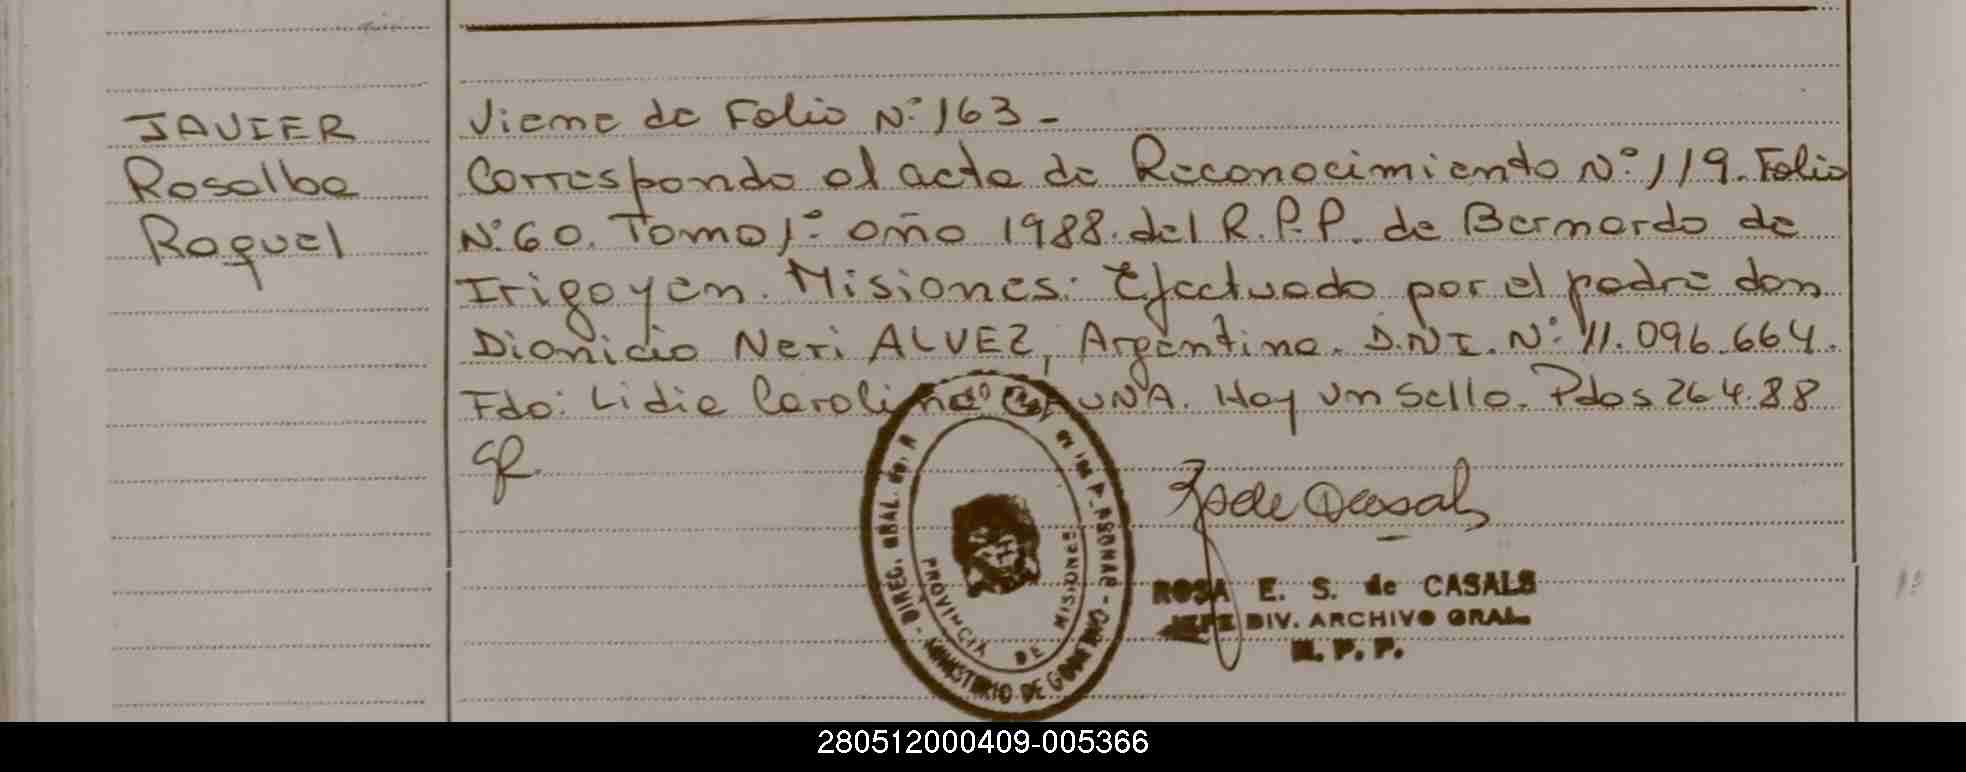 JAVIER
Rosalba
Raquel
Viene de Folio N° 163 -
Corresponde al acta de Reconocimiento N° 119. Folio
N° 60. Tomo 1° año 1988. del R.P.P. de Bernardo de
Irigoyen. Misiones. Efectuado por el padre don
Dionicio Neri ALVEZ, Argentino. D.N.I. N° 11.096.664.
Fdo: Lidia Carolina UNA. Hay un sello. Pdas 26.4.88
DIREC. GRAL. de
MINISTERIO DE
PROVINCIA DE MISIONES
ROSA E. S. de CASALS
JEFE DIV. ARCHIVO GRAL.
R. P. P.
280512000409-005366